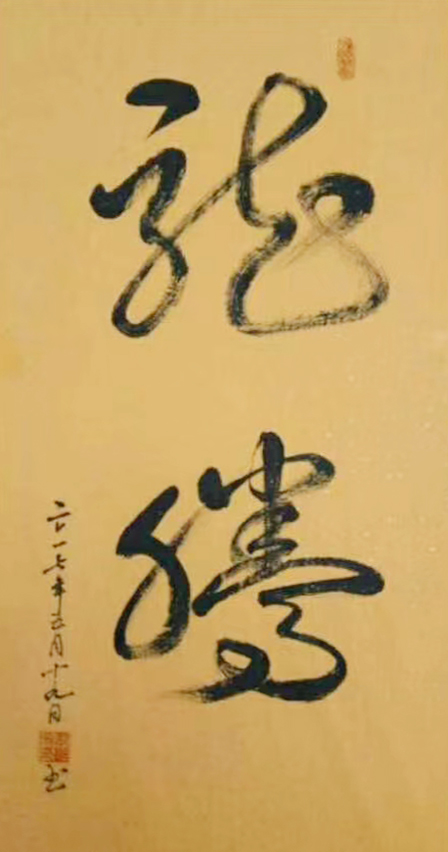 龍騰
二〇一七年五月十九日
书